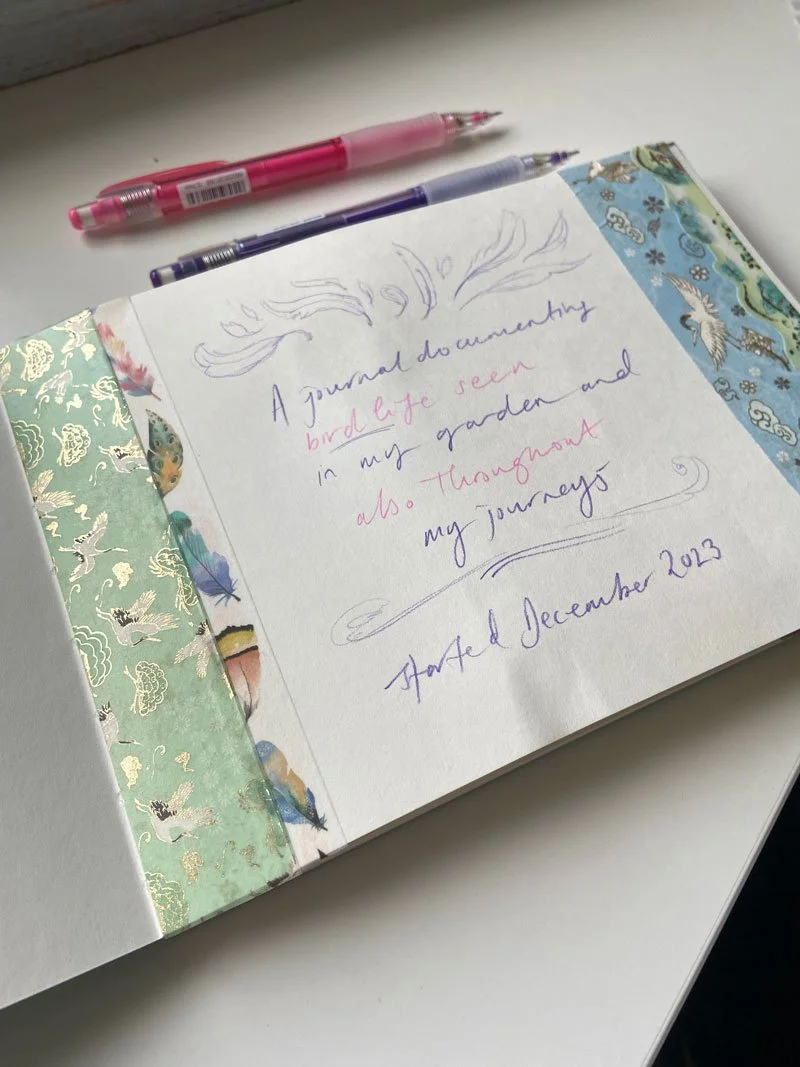 A journal documenting
bird life seen
in my garden and
also throughout
my journeys
started December 2023